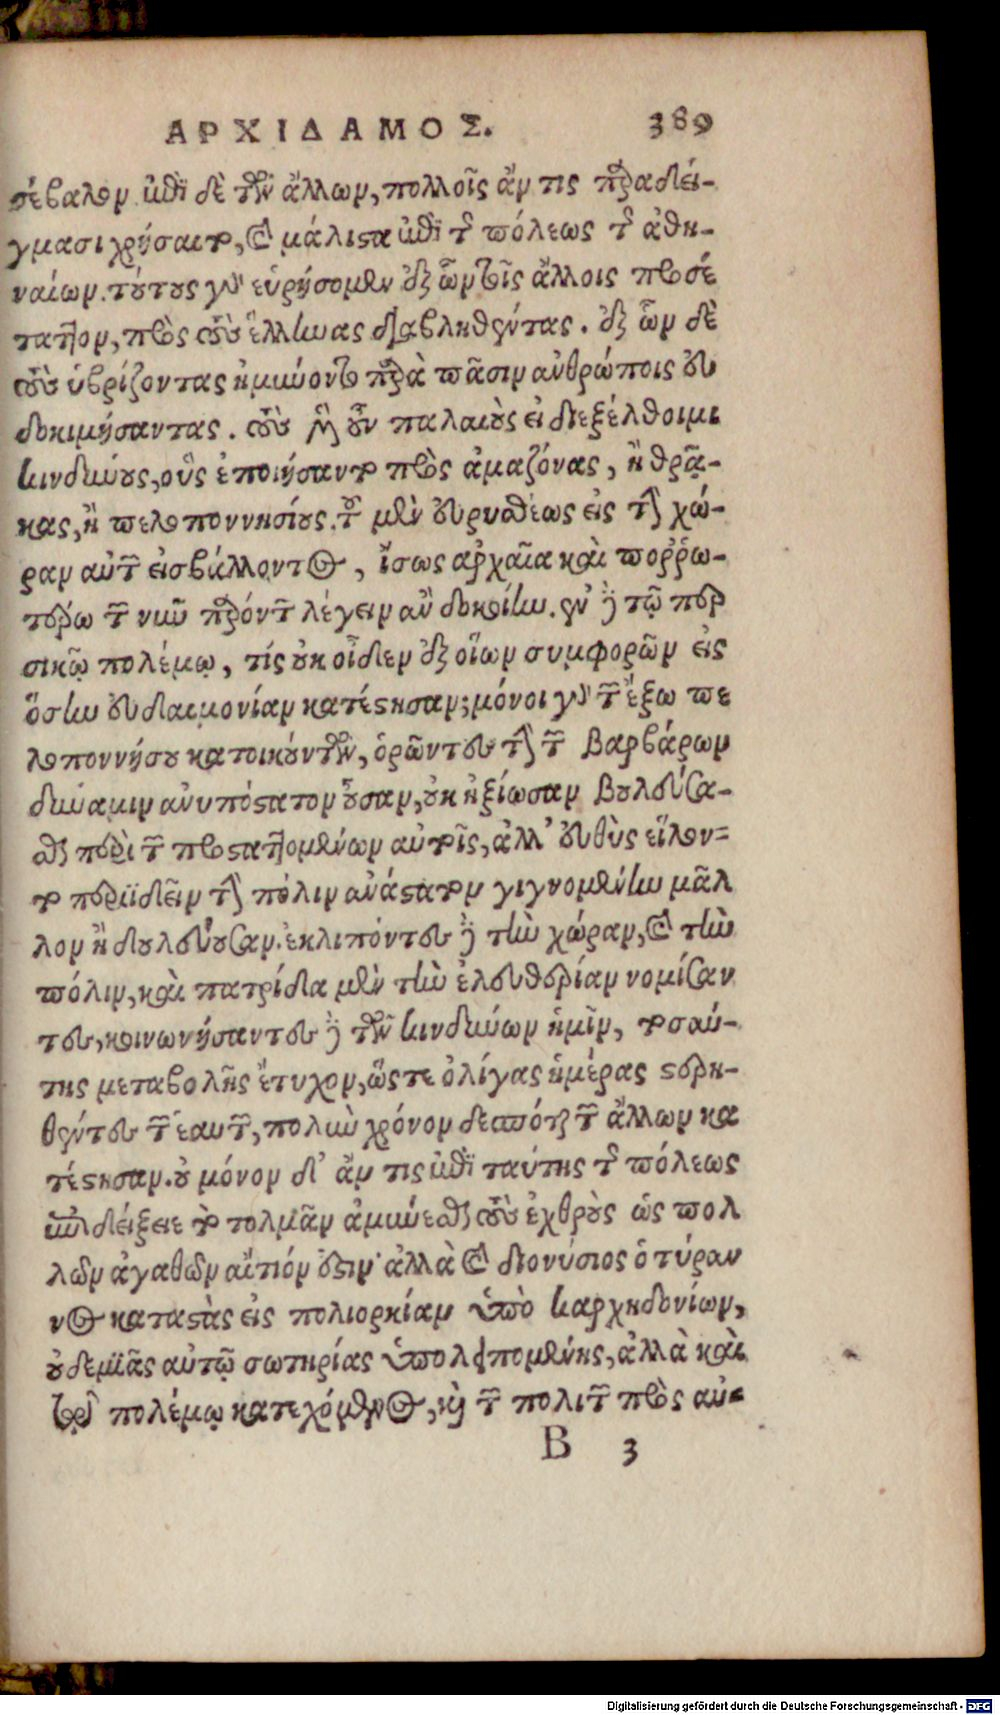 ΑΡΧΙΔΑΜΟΣ. 389
σέβαλον. ἐπὶ δὲ τῶν ἄλλων, πολλοῖς ἄν τις παραδεί-
γμασι χρήσαιτο, καὶ μάλιστα ἐπὶ τῆς πόλεως τῆς ἀθη-
ναίων. τούτους γὰρ εὑρήσομεν ἐξ ὧν τοῖς ἄλλοις προσέ
ταττον, πρὸς τοὺς ἕλληνας διαβληθέντας. ἐξ ὧν δὲ
τοὺς ὑβρίζοντας ἠμύνοντο παρὰ πᾶσιν ἀνθρώποις εὐ
δοκιμήσαντας. τοὺς μὲν οὖν παλαιοὺς εἰ διεξέλθοιμι
κινδύνους, οὓς ἐποιήσαντο πρὸς ἀμαζόνας, ἢ θρᾷ-
κας, ἢ πελοποννησίους. τοὺς μὲν εὐρυσθέως εἰς τὴν χώ-
ραν αὐτῶν εἰσβάλλοντος, ἴσως ἀρχαῖα καὶ ποῤῥω-
τέρω τῶν νῦν παρόντων λέγειν ἂν δοκοίην. ἐν δὲ τῷ περ
σικῷ πολέμῳ, τίς οὐκ οἶδεν ἐξ οἵων συμφορῶν εἰς
ὅσην εὐδαιμονίαν κατέστησαν; μόνοι γὰρ τῶν ἔξω πε
λοποννήσου κατοικούντων, ὁρῶντες τὴν τῶν βαρβάρων
δύναμιν ἀνυπόστατον οὖσαν, οὐκ ἠξίωσαν βουλεύσα-
σθαι περὶ τῶν προσταττομένων αὐτοῖς, ἀλλ' εὐθὺς εἵλον-
το περιϊδεῖν τὴν πόλιν ἀνάστατον γιγνομένην μᾶλ
λον ἢ δουλεύουσαν. ἐκλιπόντες δὲ τὴν χώραν, καὶ τὴν
πόλιν, καὶ πατρίδα μὲν τὴν ἐλευθερίαν νομίσαν
τες, κοινωνήσαντες δὲ τῶν κινδύνων ἡμῖν, τοσαύ-
της μεταβολῆς ἔτυχον, ὥστε ὀλίγας ἡμέρας στερη-
θέντες τῶν ἑαυτῶν, πολὺν χρόνον δεσπόται τῶν ἄλλων κα
τέστησαν. οὐ μόνον δ' ἄν τις ἐπὶ ταύτης τῆς πόλεως
ἐπιδείξειε τὸ τολμᾶν ἀμύνεσθαι τοὺς ἐχθροὺς ὡς πολ
λῶν ἀγαθῶν αἴτιόν ἐστιν· ἀλλὰ καὶ διονύσιος ὁ τύραν
νος καταστὰς εἰς πολιορκίαν ὑπὸ καρχηδονίων,
οὐδεμιᾶς αὐτῷ σωτηρίας ὑπολειπομένης, ἀλλὰ καὶ
τῷ πολέμῳ κατεχόμενος, καὶ τῶν πολιτῶν πρὸς αὐ-
B 3
Digitalisierung gefördert durch die Deutsche Forschungsgemeinschaft - DFG